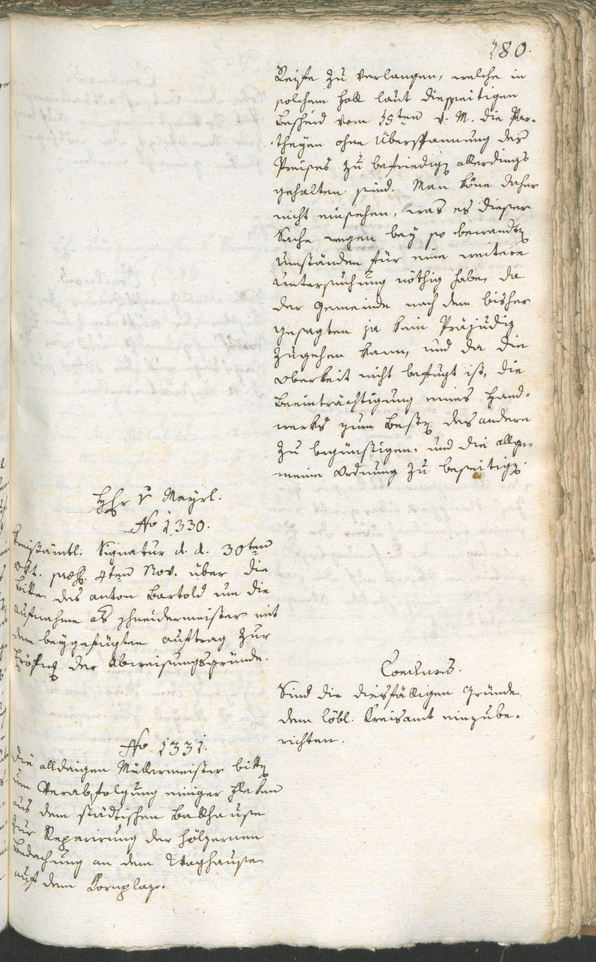 780.
Reise zu verlangen, welche in
solchem Fall laut diesseitigen
Bescheid vom 15ten v. M. die Par-
theyen ohne Überspannung des
Preises zu befriedigen allerdings
gehalten sind. Man könne daher
nicht einsehen, was es dieser
Sache wegen bey so bewandten
Umständen für eine weitere
Untersuchung nöthig habe, da
der Gemeinde nach dem bisher
gesagten ja kein Präjudiz
zugehen kann, und da die
Obrigkeit nicht befugt ist, die
Beeinträchtigung eines Hand-
werks zum Besten des andern
zu begünstigen, und die allge-
meine Ordnung zu beseitigen.
Hr v Mayrl.
No 1330.
Kreisämtl. Signatur d. d. 30ten
Okt. praes. 4ten Nov. über die
Bitte des Anton Bartold um die
Aufnahme als Schneidermeister mit
dem beygefügten Auftrag zur
der Abweisungsgründe.
Conclusum.
Sind die diesfälligen Gründe
dem löbl. Kreisamt einzube-
richten.
No 1331.
Die alldaigen Müllermeister bitten
um Verabfolgung einiger
aus dem städtischen Bauhause
zur Reparirung der hölzernen
Bedachung an dem Waghause
auf dem Kornplaz.